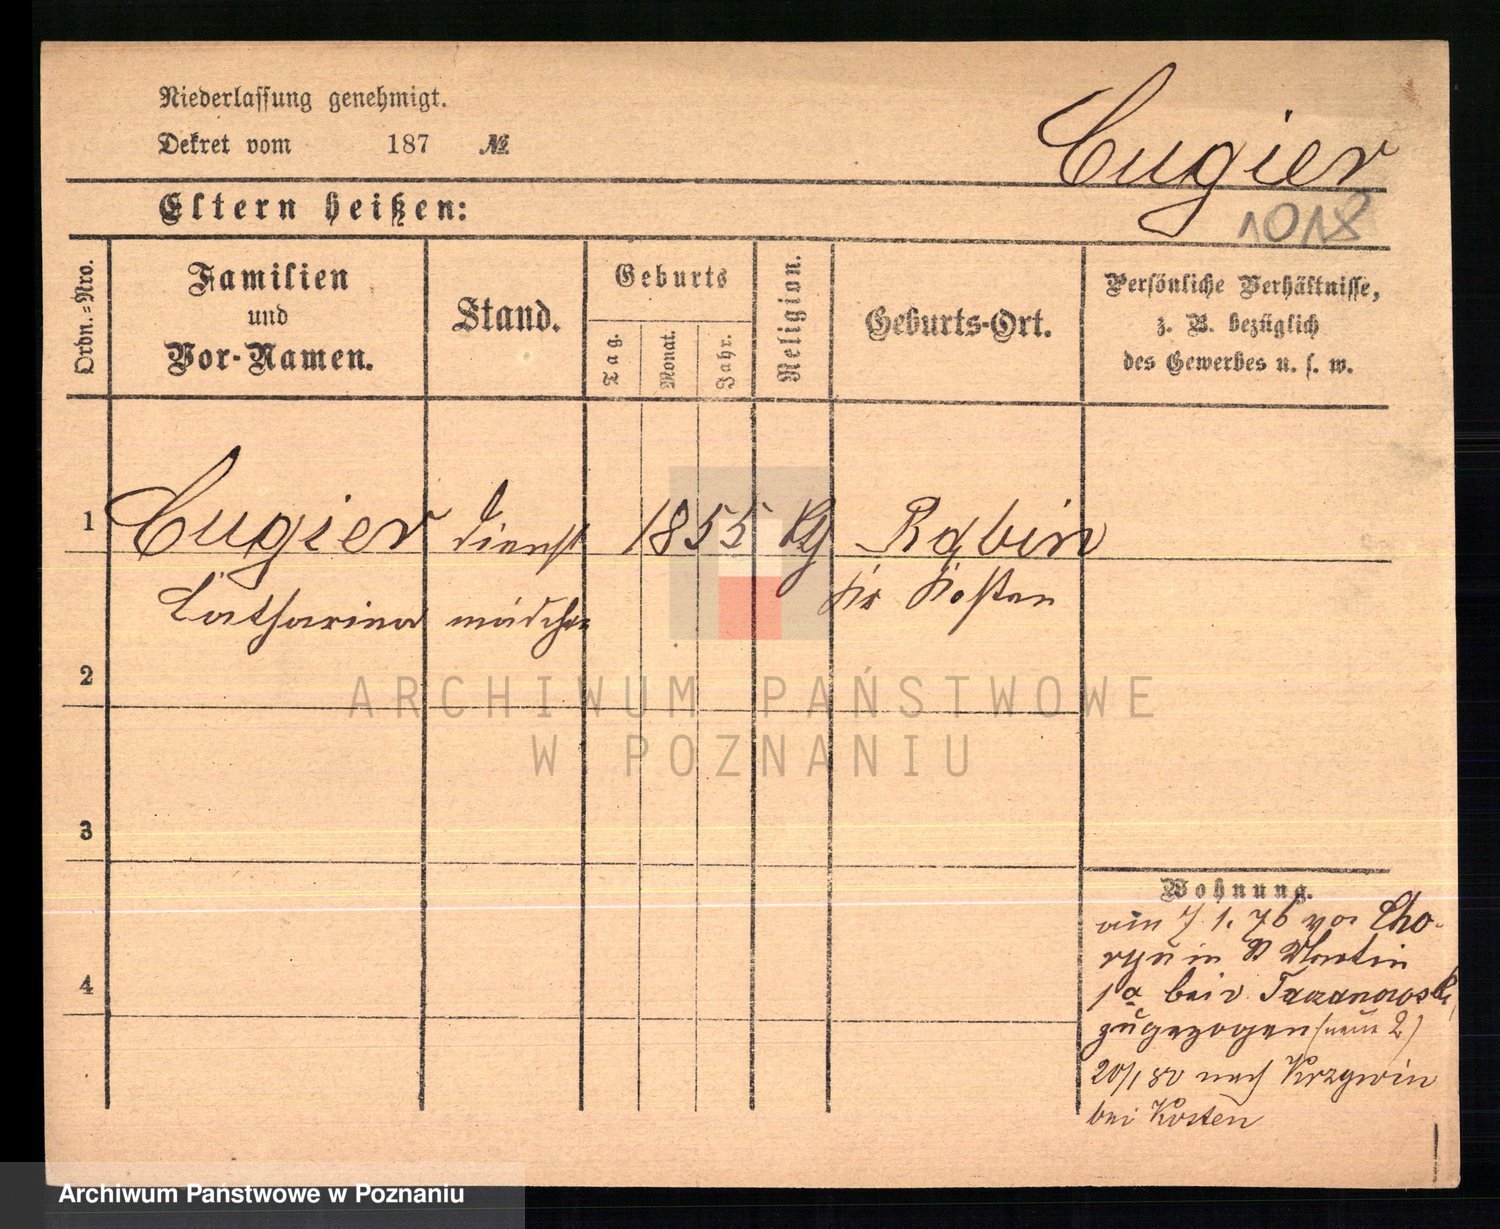 Niederlassung genehmigt.
Dekret vom 187 №
Cugier
Eltern heißen:
1018
Ordn.=Nro.
Familien
und
Vor-Namen.
Stand.
Geburts
Tag.
Monat.
Jahr.
Religion.
Geburts-Ort.
Persönliche Verhältnisse,
z. B. bezüglich
des Gewerbes u. s. w.
1 Cugier dienst 1855 Rąbin
Catharina mädchen Kr Kosten
2
3
4
Wohnung.
am 7 1. 76 von Cho-
ryn in St Martin
bei v.
zugezogen (neue 2)
20/1 80 nach Krzywin
bei Kosten
ARCHIWUM PAŃSTWOWE
W POZNANIU
Archiwum Państwowe w Poznaniu